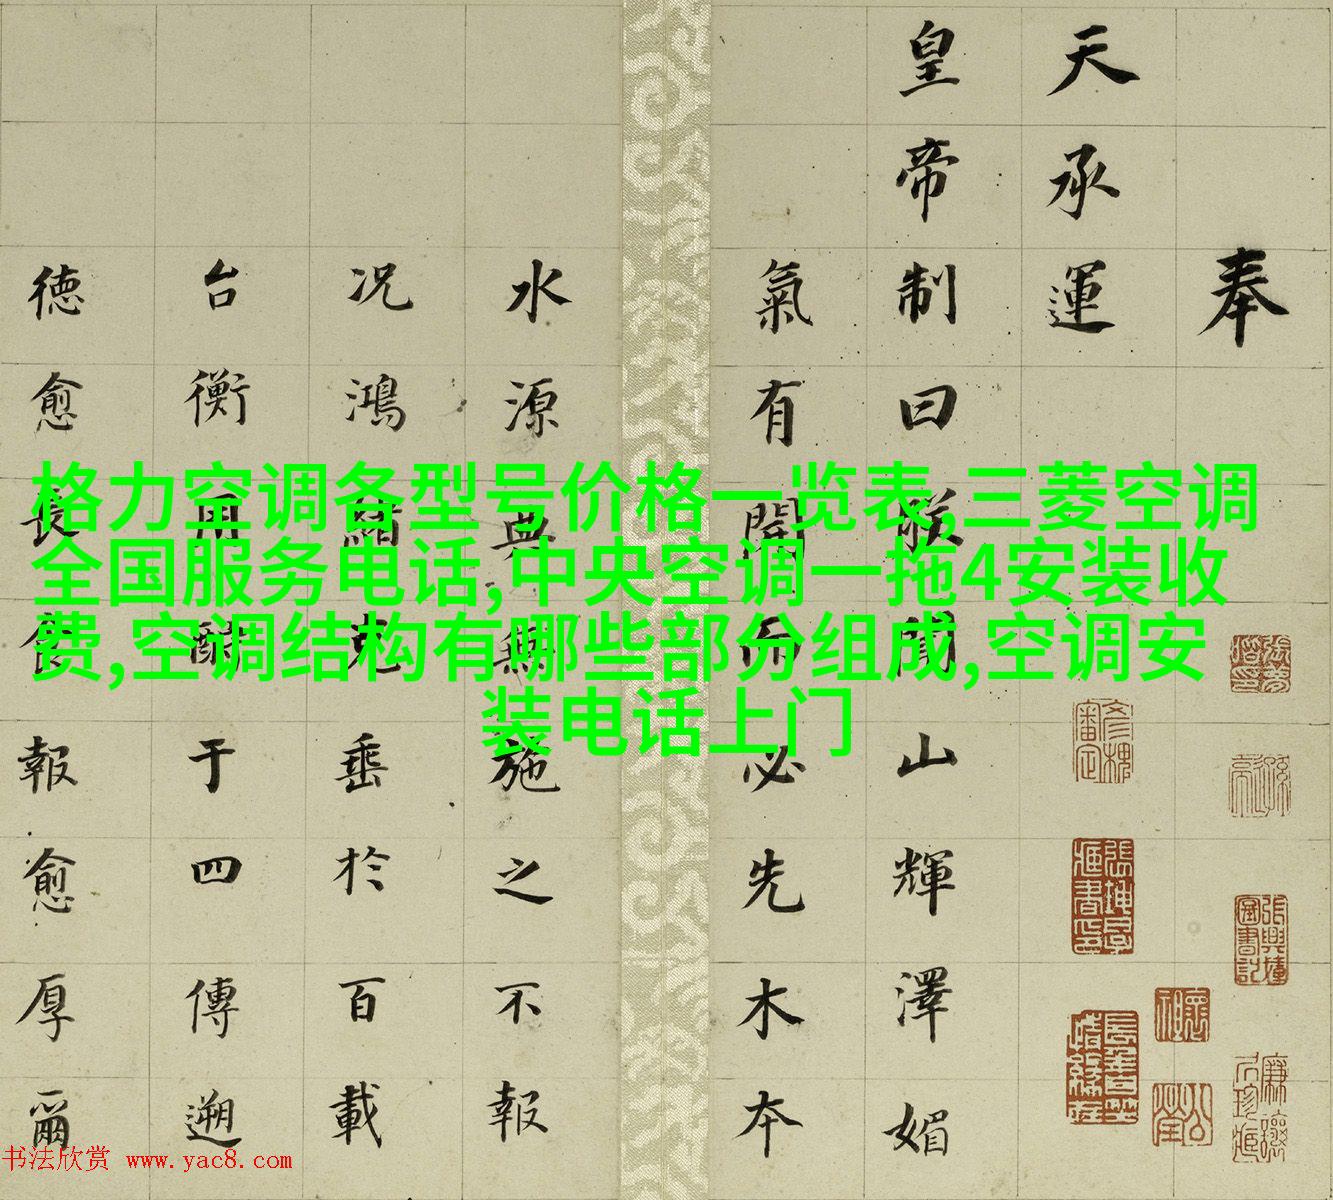 奉
天承運
皇帝制曰朕聞山輝澤媚
氣有開而必先木本
水源典無施之不報
况鴻緒克垂於百載
台衡用酬于四傳遡
德愈長食報愈厚爾
格力空调各型号价格一览表,三菱空调
全国服务电话,中央空调一拖4安装收
费,空调结构有哪些部分组成,空调安
装电话上门
书法欣赏 www.yac8.com